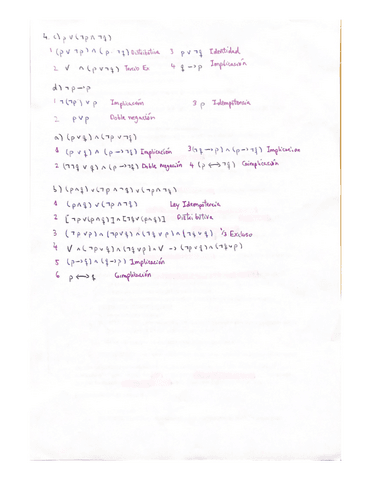 4. c) p ∨ (¬p ∧ ¬q)
1 (p ∨ ¬p) ∧ (p ∨ ¬q) Distributiva 3 p ∨ ¬q Identidad
2 V ∧ (p ∨ ¬q) Tercio Ex 4 q → p Implicación
d) ¬p → p
1 ¬(¬p) ∨ p Implicación 3 p Idempotencia
2 p ∨ p Doble negación
a) (p ∨ q) ∧ (¬p ∨ ¬q)
1 (p ∨ q) ∧ (p → ¬q) Implicación 3 (¬q → p) ∧ (p → ¬q) Implicación
2 (¬¬q ∨ q) ∧ (p → ¬q) Doble negación 4 (p ↔ ¬q) Coimplicación
b) (p ∧ q) ∨ (¬p ∧ ¬q) ∨ (¬p ∧ ¬q)
1 (p ∧ q) ∨ (¬p ∧ ¬q) Ley Idempotencia
2 [¬p ∨ (p ∧ q)] ∧ [¬q ∨ (p ∧ q)] Distributiva
3 (¬p ∨ p) ∧ (¬p ∨ q) ∧ (¬q ∨ p) ∧ (¬q ∨ q) 1/3 Excluso
4 V ∧ (¬p ∨ q) ∧ (¬q ∨ p) ∧ V → (¬p ∨ q) ∧ (¬q ∨ p)
5 (p → q) ∧ (q → p) Implicación
6 p ↔ q Coimplicación